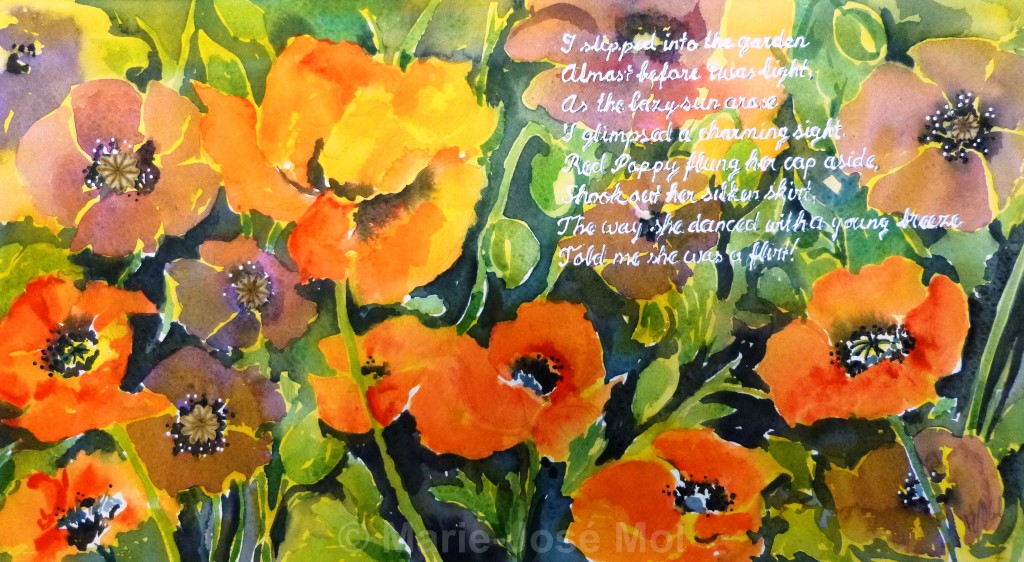 I slipped into the garden
Almost before 'twas light,
As the lazy sun arose
I glimpsed a charming sight.
Red Poppy flung her cap aside,
Shook out her silken skirt,
The way she danced with a young breeze
Told me she was a flirt!
© Marie-José Mol